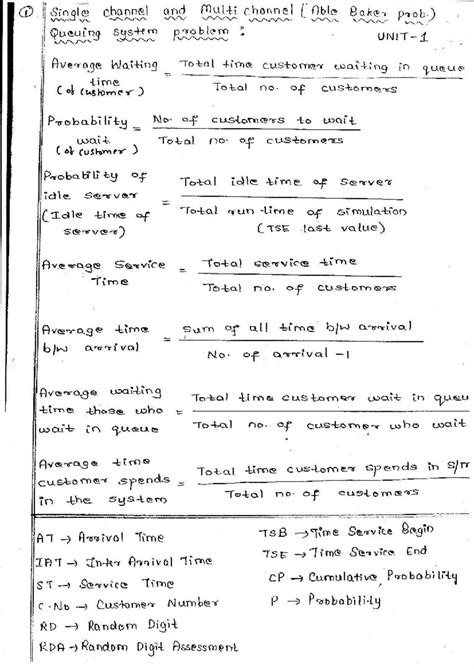 ① Single channel and Multi channel (Able Baker prob.)
Queuing system problem :
UNIT-1
Average Waiting time (of customer) = Total time customer waiting in queue / Total no. of customers
Probability wait (of customer) = No. of customers to wait / Total no. of customers
Probability of idle server (Idle time of server) = Total idle time of server / Total run-time of simulation (TSE last value)
Average Service Time = Total service time / Total no. of customers
Average time b/w arrival = Sum of all time b/w arrival / No. of arrival -1
Average waiting time those who wait in queue = Total time customer wait in queu / Total no. of customer who wait
Average time customer spends in the system = Total time customer spends in S/m / Total no. of customers
AT → Arrival Time
IAT → Inter Arrival Time
ST → Service Time
C.No → Customer Number
RD → Random Digit
RDA → Random Digit Assessment
TSB → Time Service Begin
TSE → Time Service End
CP → Cumulative Probability
P → Probability